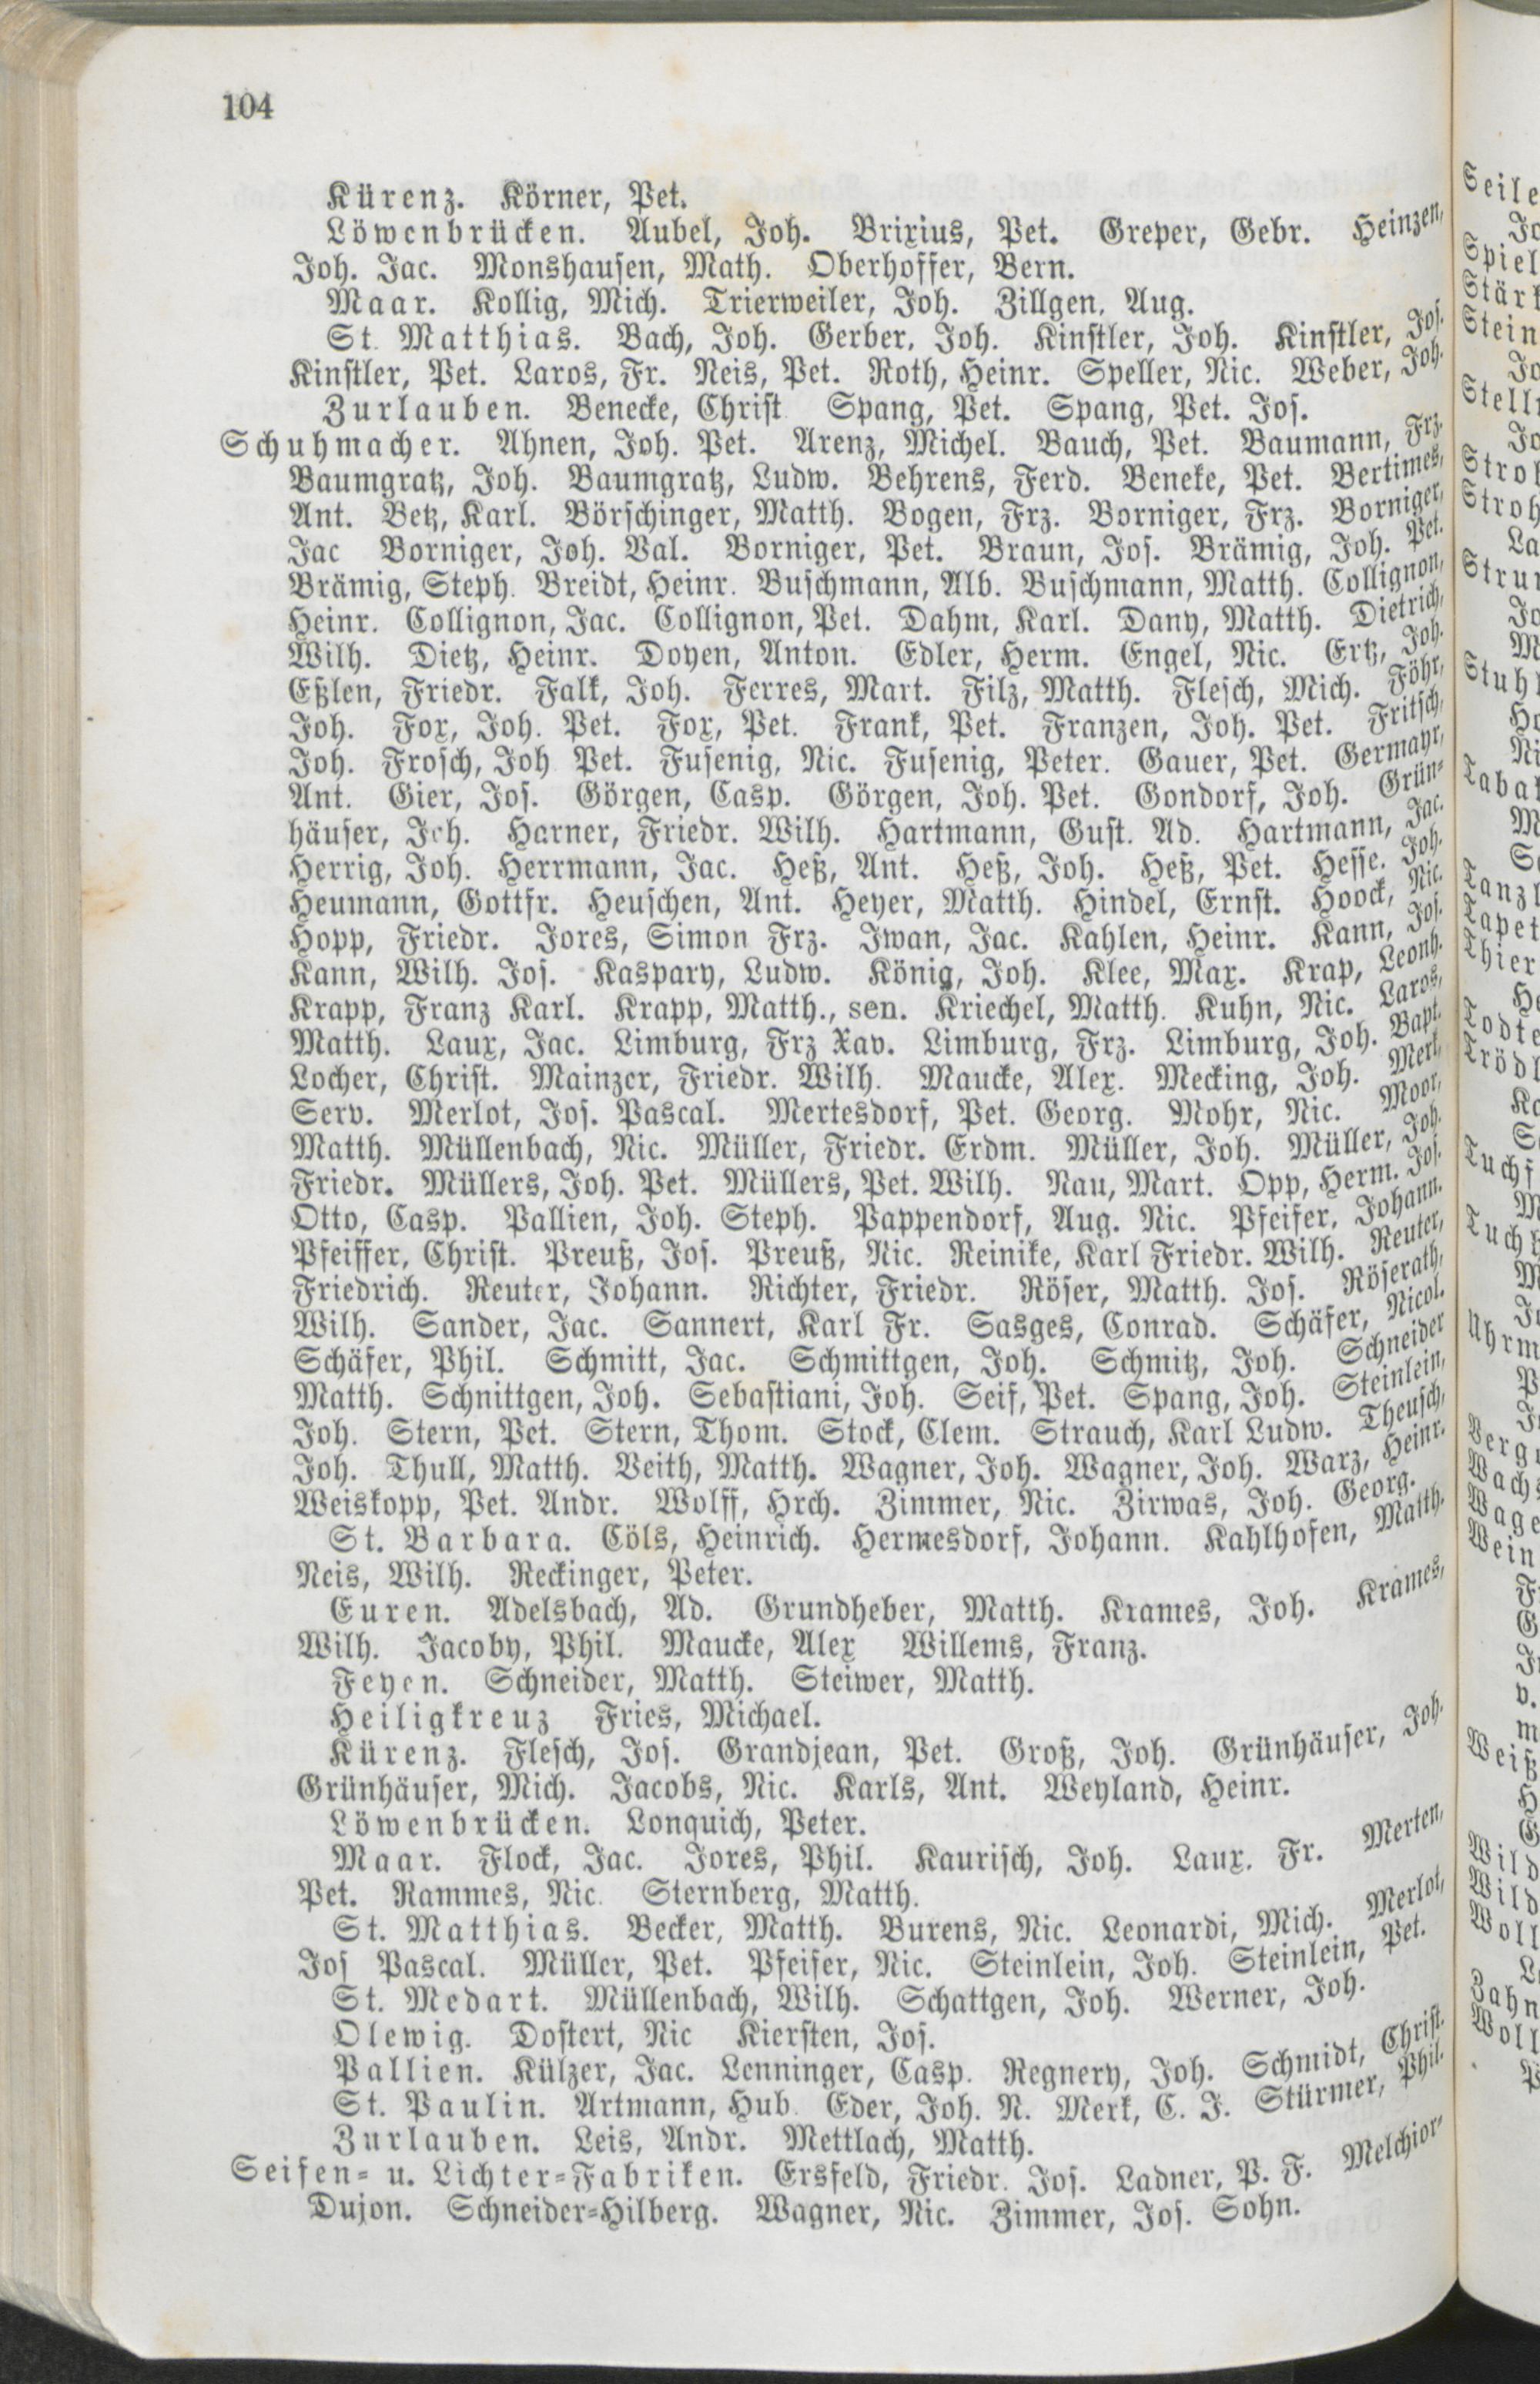 104
Kürenz. Körner, Pet.
Löwenbrücken. Aubel, Joh. Brixius, Pet. Greper, Gebr. Heinzen,
Joh. Jac. Monshausen, Math. Oberhoffer, Bern.
Maar. Kollig, Mich. Trierweiler, Joh. Zillgen, Aug.
St. Matthias. Bach, Joh. Gerber, Joh. Kinstler, Joh. Kinstler, Jos.
Kinstler, Pet. Laros, Fr. Neis, Pet. Roth, Heinr. Speller, Nic. Weber, Joh.
Zurlauben. Benecke, Christ Spang, Pet. Spang, Pet. Jos.
Schuhmacher. Ahnen, Joh. Pet. Arenz, Michel. Bauch, Pet. Baumann, Frz.
Baumgratz, Joh. Baumgratz, Ludw. Behrens, Ferd. Beneke, Pet. Bertimes,
Ant. Betz, Karl. Börschinger, Matth. Bogen, Frz. Borniger, Frz. Borniger,
Jac Borniger, Joh. Val. Borniger, Pet. Braun, Jos. Brämig, Joh. Pet.
Brämig, Steph. Breidt, Heinr. Buschmann, Alb. Buschmann, Matth. Collignon,
Heinr. Collignon, Jac. Collignon, Pet. Dahm, Karl. Dany, Matth. Dietrich,
Wilh. Dietz, Heinr. Doyen, Anton. Edler, Herm. Engel, Nic. Ertz, Joh.
Eßlen, Friedr. Falk, Joh. Ferres, Mart. Filz, Matth. Flesch, Mich. Föhr,
Joh. Fox, Joh. Pet. Fox, Pet. Frank, Pet. Franzen, Joh. Pet. Fritsch,
Joh. Frosch, Joh Pet. Fusenig, Nic. Fusenig, Peter. Gauer, Pet. Germayr,
Ant. Gier, Jos. Görgen, Casp. Görgen, Joh. Pet. Gondorf, Joh. Grün-
häuser, Joh. Harner, Friedr. Wilh. Hartmann, Gust. Ad. Hartmann, Jac.
Herrig, Joh. Herrmann, Jac. Heß, Ant. Heß, Joh. Heß, Pet. Hesse. Joh.
Heumann, Gottfr. Heuschen, Ant. Heyer, Matth. Hindel, Ernst. Hoock, Nic.
Hopp, Friedr. Jores, Simon Frz. Iwan, Jac. Kahlen, Heinr. Kann, Jos.
Kann, Wilh. Jos. Kaspary, Ludw. König, Joh. Klee, Max. Krap, Leonh.
Krapp, Franz Karl. Krapp, Matth., sen. Kriechel, Matth. Kuhn, Nic. Laros,
Matth. Laux, Jac. Limburg, Frz Xav. Limburg, Frz. Limburg, Joh. Bapt.
Locher, Christ. Mainzer, Friedr. Wilh. Maucke, Alex. Mecking, Joh. Merk,
Serv. Merlot, Jos. Pascal. Mertesdorf, Pet. Georg. Mohr, Nic. Moor,
Matth. Müllenbach, Nic. Müller, Friedr. Erdm. Müller, Joh. Müller, Joh.
Friedr. Müllers, Joh. Pet. Müllers, Pet. Wilh. Nau, Mart. Opp, Herm. Jos.
Otto, Casp. Pallien, Joh. Steph. Pappendorf, Aug. Nic. Pfeifer, Johann.
Pfeiffer, Christ. Preuß, Jos. Preuß, Nic. Reinike, Karl Friedr. Wilh. Reuter,
Friedrich. Reuter, Johann. Richter, Friedr. Röser, Matth. Jos. Röserath,
Wilh. Sander, Jac. Sannert, Karl Fr. Sasges, Conrad. Schäfer, Nicol.
Schäfer, Phil. Schmitt, Jac. Schmittgen, Joh. Schmitz, Joh. Schneider
Matth. Schnittgen, Joh. Sebastiani, Joh. Seif, Pet. Spang, Joh. Steinlein,
Joh. Stern, Pet. Stern, Thom. Stock, Clem. Strauch, Karl Ludw. Theusch,
Joh. Thull, Matth. Veith, Matth. Wagner, Joh. Wagner, Joh. Warz, Heinr.
Weiskopp, Pet. Andr. Wolff, Hrch. Zimmer, Nic. Zirwas, Joh. Georg.
St. Barbara. Cöls, Heinrich. Hermesdorf, Johann. Kahlhofen, Matth.
Neis, Wilh. Reckinger, Peter.
Euren. Adelsbach, Ad. Grundheber, Matth. Krames, Joh. Krames,
Wilh. Jacoby, Phil. Maucke, Alex Willems, Franz.
Feyen. Schneider, Matth. Steiwer, Matth.
Heiligkreuz Fries, Michael.
Kürenz. Flesch, Jos. Grandjean, Pet. Groß, Joh. Grünhäuser, Joh.
Grünhäuser, Mich. Jacobs, Nic. Karls, Ant. Weyland, Heinr.
Löwenbrücken. Lonquich, Peter.
Maar. Flock, Jac. Jores, Phil. Kaurisch, Joh. Laux, Fr. Merten,
Pet. Rammes, Nic. Sternberg, Matth.
St. Matthias. Becker, Matth. Burens, Nic. Leonardi, Mich. Merlot,
Jos Pascal. Müller, Pet. Pfeifer, Nic. Steinlein, Joh. Steinlein, Pet.
St. Medart. Müllenbach, Wilh. Schattgen, Joh. Werner, Joh.
Olewig. Dostert, Nic Kiersten, Jos.
Pallien. Külzer, Jac. Lenninger, Casp. Regnery, Joh. Schmidt, Christ.
St. Paulin. Artmann, Hub. Eder, Joh. N. Merk, C. J. Stürmer, Phil.
Zurlauben. Leis, Andr. Mettlach, Matth.
Seifen- u. Lichter-Fabriken. Ersfeld, Friedr. Jos. Ladner, P. F. Melchior-
Dujon. Schneider-Hilberg. Wagner, Nic. Zimmer, Jos. Sohn.